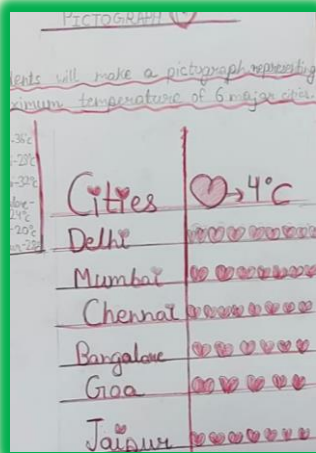 PICTOGRAPH
will make a pictograph representing
temperature of 6 major cities.
-36°c
-32°c
-24°c
-20°c
Cities → 4°C
Delhi
Mumbai
Chennai
Bangalore
Goa
Jaipur